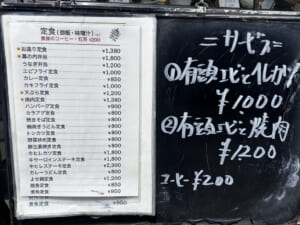 定食（御飯・味噌汁）
食後のコーヒー・紅茶 ¥200
お造り定食 ¥1,380
幕の内弁当 ¥1,380
うなぎ弁当 ¥1,200
エビフライ定食 ¥1,000
カレー定食 ¥850
カキフライ定食 ¥1,000
天ぷら定食 ¥1,200
焼肉定食 ¥1,380
ハンバーグ定食 ¥900
カラアゲ定食 ¥900
焼きそば定食 ¥900
トンカツ定食 ¥900
野菜炒め定食 ¥900
豚生姜焼き定食 ¥900
牛ヒレカツ定食
サーロインステーキ定食
牛ヒレステーキ定食 ¥2,300
カレーうどん定食
よせ鍋定食 ¥1,200
焼魚定食 ¥850
煮魚定食 ¥950
=サービス=
①有頭エビと
¥1000
②有頭エビと焼肉
¥1200
コーヒー¥200